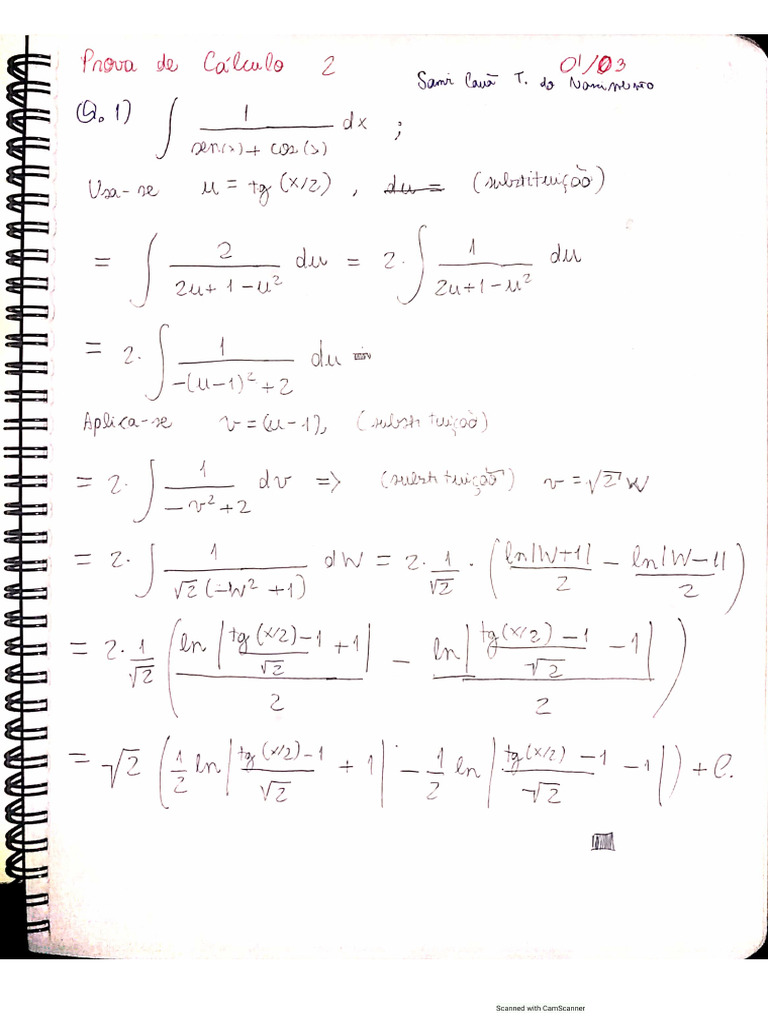 Prova de Cálculo 2 01/03
Sami Cauã T. do
(Q.1) ∫ 1/(sen(x) + cos(x)) dx ;
Usa-se u = tg(x/2), du = (substituição)
= ∫ 2/(2u + 1 - u²) du = 2·∫ 1/(2u + 1 - u²) du
= 2·∫ 1/(-(u-1)² + 2) du
Aplica-se v = (u-1), (substituição)
= 2·∫ 1/(-v² + 2) dv => (substituição) v = √2 w
= 2·∫ 1/(√2(-w² + 1)) dw = 2·1/√2·(ln|w+1|/2 - ln|w-1|/2)
= 2·1/√2 (ln|(tg(x/2)-1)/√2 + 1|/2 - ln|(tg(x/2)-1)/√2 - 1|/2)
= √2 (1/2 ln|(tg(x/2)-1)/√2 + 1| - 1/2 ln|(tg(x/2)-1)/√2 - 1|) + C.
Scanned with CamScanner